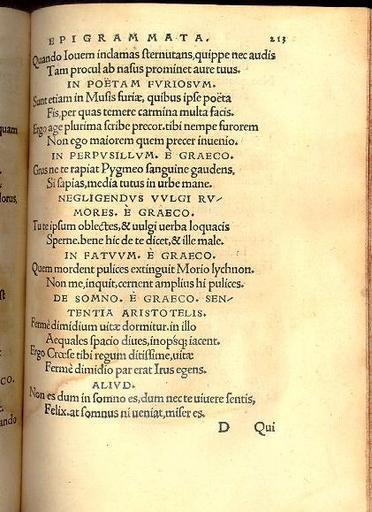 quam
lorus,
st
CO.
ando
EPIGRAMMATA. 213
Quando Iouem inclamas sternutans, quippe nec audis
Tam procul ab nasus prominet aure tuus.
IN POËTAM FVRIOSVM.
Sunt etiam in Musis furiæ, quibus ipse poëta
Fis, per quas temere carmina multa facis.
Ergo age plurima scribe precor. tibi nempe furorem
Non ego maiorem quem precer inuenio.
IN PERPVSILLVM. È GRAECO.
Grus ne te rapiat Pygmeo sanguine gaudens,
Si sapias, media tutus in urbe mane.
NEGLIGENDVS VVLGI RV-
MORES. È GRAECO.
Tu te ipsum oblectes, & uulgi uerba loquacis
Sperne. bene hic de te dicet, & ille male.
IN FATVVM. È GRAECO.
Quem mordent pulices extinguit Morio lychnon.
Non me, inquit, cernent amplius hi pulices.
DE SOMNO. È GRAECO. SEN-
TENTIA ARISTOTELIS.
Fermè dimidium uitæ dormitur. in illo
Aequales spacio diues, inopsq; iacent.
Ergo Crœse tibi regum ditissime, uitæ
Fermè dimidio par erat Irus egens.
ALIVD.
Non es dum in somno es, dum nec te uiuere sentis,
Felix. at somnus ni ueniat, miser es.
D Qui